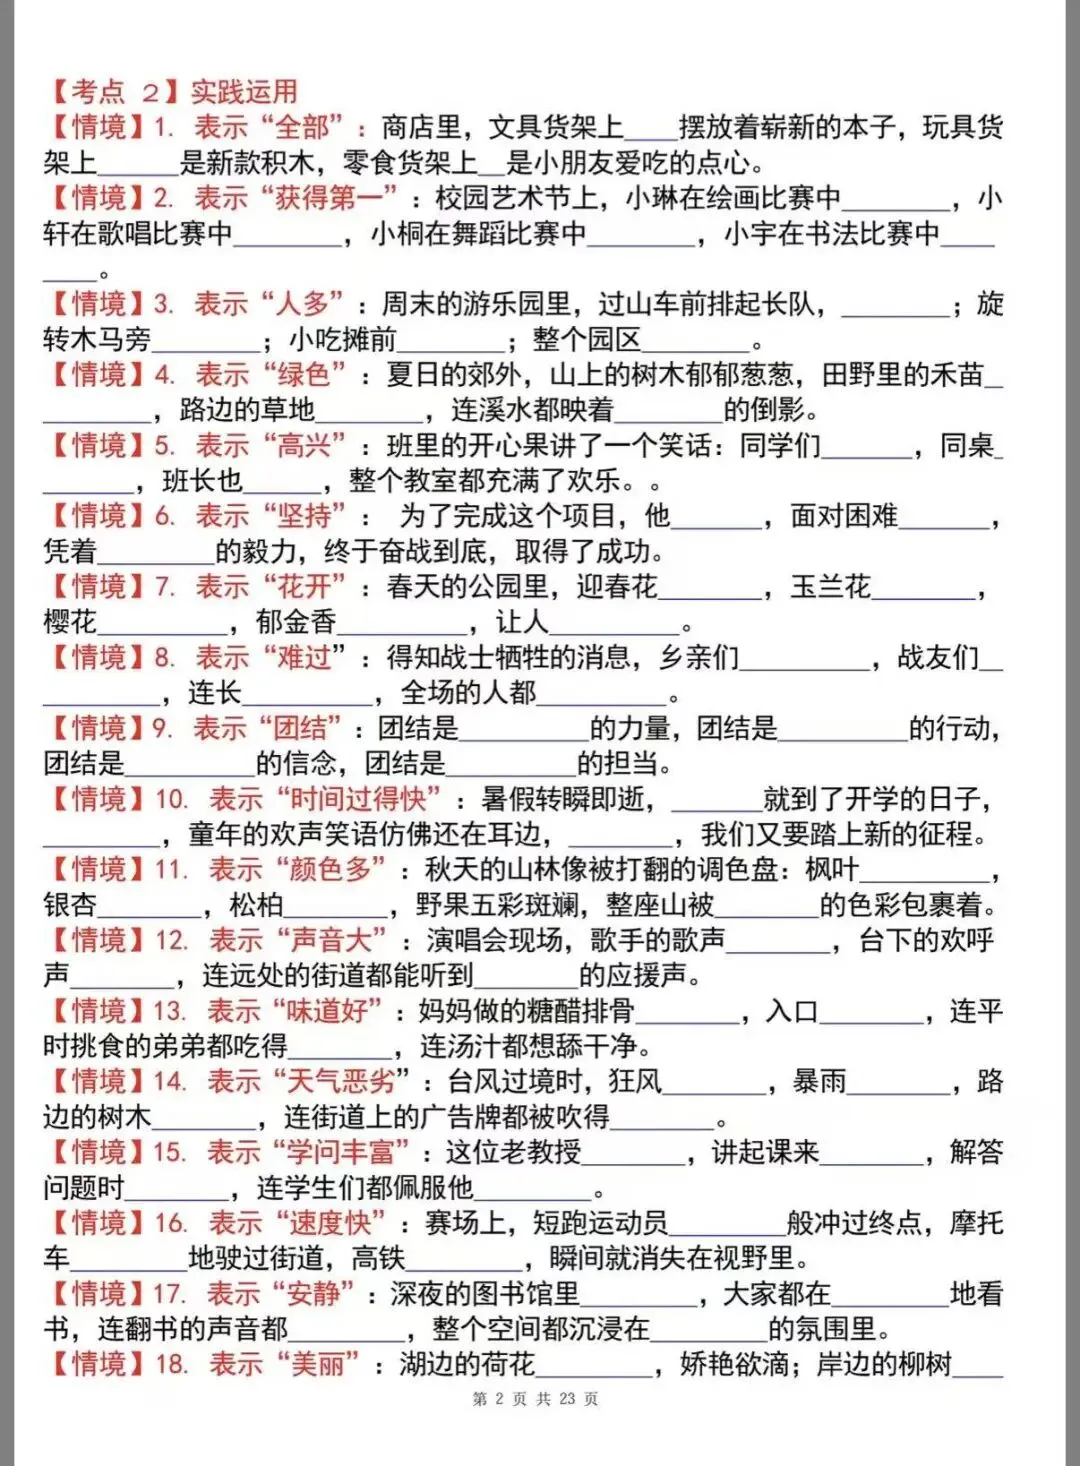 【考点 2】实践运用
【情境】1. 表示“全部”：商店里，文具货架上____摆放着崭新的本子，玩具货
架上______是新款积木，零食货架上__是小朋友爱吃的点心。
【情境】2. 表示“获得第一”：校园艺术节上，小琳在绘画比赛中________，小
轩在歌唱比赛中________，小桐在舞蹈比赛中________，小宇在书法比赛中____
____。
【情境】3. 表示“人多”：周末的游乐园里，过山车前排起长队，________；旋
转木马旁________；小吃摊前________；整个园区________。
【情境】4. 表示“绿色”：夏日的郊外，山上的树木郁郁葱葱，田野里的禾苗_
________，路边的草地________，连溪水都映着________的倒影。
【情境】5. 表示“高兴”：班里的开心果讲了一个笑话：同学们_______，同桌_
_______，班长也______，整个教室都充满了欢乐。。
【情境】6. 表示“坚持”： 为了完成这个项目，他_______，面对困难_______，
凭着_________的毅力，终于奋战到底，取得了成功。
【情境】7. 表示“花开”：春天的公园里，迎春花________，玉兰花________，
樱花__________，郁金香__________，让人__________。
【情境】8. 表示“难过”：得知战士牺牲的消息，乡亲们__________，战友们__
_________，连长__________，全场的人都__________。
【情境】9. 表示“团结”：团结是__________的力量，团结是__________的行动，
团结是__________的信念，团结是__________的担当。
【情境】10. 表示“时间过得快”：暑假转瞬即逝，_______就到了开学的日子，
_________，童年的欢声笑语仿佛还在耳边，________，我们又要踏上新的征程。
【情境】11. 表示“颜色多”：秋天的山林像被打翻的调色盘：枫叶__________，
银杏________，松柏________，野果五彩斑斓，整座山被________的色彩包裹着。
【情境】12. 表示“声音大”：演唱会现场，歌手的歌声________，台下的欢呼
声________，连远处的街道都能听到________的应援声。
【情境】13. 表示“味道好”：妈妈做的糖醋排骨________，入口________，连平
时挑食的弟弟都吃得________，连汤汁都想舔干净。
【情境】14. 表示“天气恶劣”：台风过境时，狂风________，暴雨________，路
边的树木________，连街道上的广告牌都被吹得________。
【情境】15. 表示“学问丰富”：这位老教授________，讲起课来________，解答
问题时________，连学生们都佩服他_________。
【情境】16. 表示“速度快”：赛场上，短跑运动员_________般冲过终点，摩托
车_________地驶过街道，高铁_________，瞬间就消失在视野里。
【情境】17. 表示“安静”：深夜的图书馆里_________，大家都在_________地看
书，连翻书的声音都_________，整个空间都沉浸在_________的氛围里。
【情境】18. 表示“美丽”：湖边的荷花_________，娇艳欲滴；岸边的柳树____
第 2 页 共 23 页